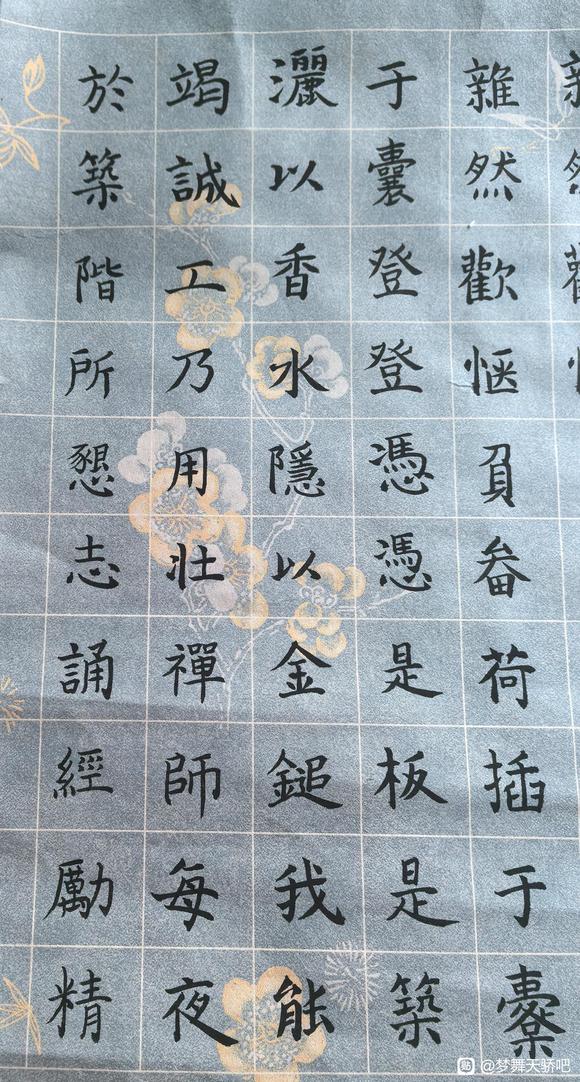 雜然歡愜負畚荷插于橐
于囊登登憑憑是板是築
灑以香水隱以金鎚我能
竭誠工乃用壯禪師每夜
於築階所懇志誦經勵精
贴 @梦舞天骄吧